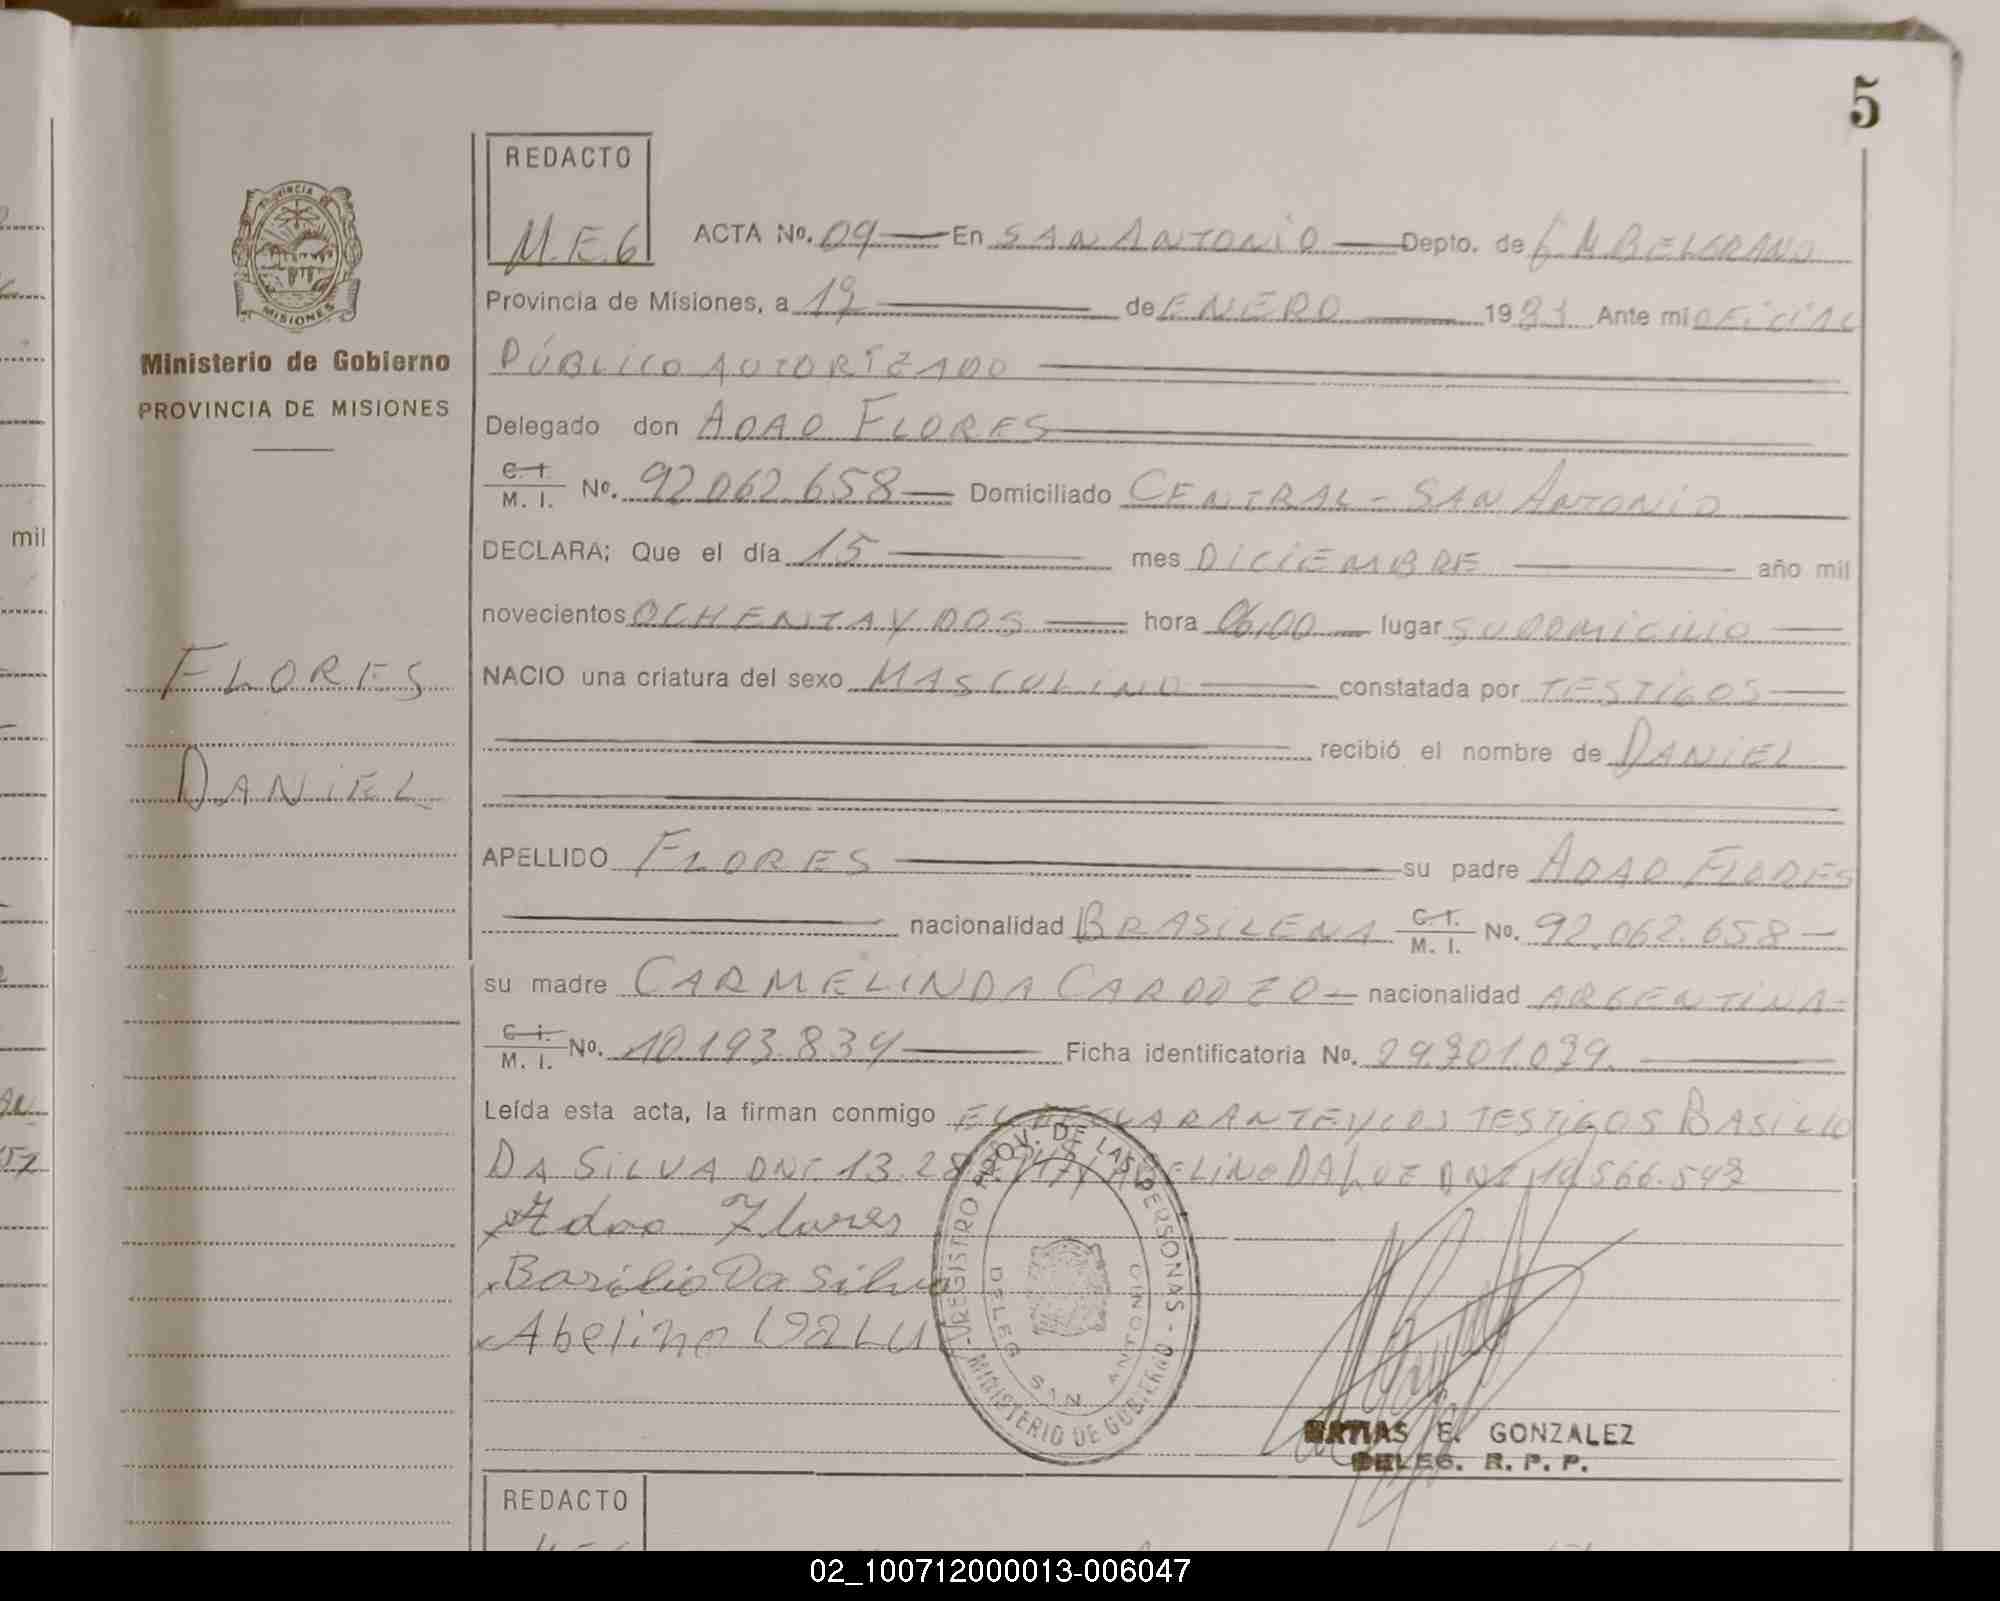 5
REDACTO
M.E.G
ACTA Nº. 09 En SAN ANTONIO Depto. de G M BELGRANO
Provincia de Misiones, a 17 de ENERO 1983 Ante mi OFICIAL
PÚBLICO AUTORIZADO
Delegado don ADAO FLORES
C. I.
M. I. Nº. 92.062.658 Domiciliado CENTRAL - SAN ANTONIO
DECLARA; Que el día 15 mes DICIEMBRE año mil
novecientos OCHENTA Y DOS hora 06,00 lugar SU DOMICILIO
NACIO una criatura del sexo MASCULINO constatada por TESTIGOS
recibió el nombre de DANIEL
APELLIDO FLORES su padre ADAO FLORES
nacionalidad BRASILENA C. I. M. I. Nº. 92.062.658
su madre CARMELINDA CARDOZO nacionalidad ARGENTINA
C. I.
M. I. Nº. 10.193.834 Ficha identificatoria Nº. 29.701.079.
Leída esta acta, la firman conmigo EL DECLARANTE Y LOS TESTIGOS BASILIO
DA SILVA DNI. 13.28 ABELINO DA LUZ DNI 566.543
Adao Flores
Basilio Da Silva
Abelino Da Lu
REGISTRO PROV. DE LAS PERSONAS - MINISTERIO DE GOBIERNO
DELEG. SAN ANTONIO
MATIAS E. GONZALEZ
DELEG. R. P. P.
PROVINCIA
MISIONES
Ministerio de Gobierno
PROVINCIA DE MISIONES
FLORES
DANIEL
mil
REDACTO
02_100712000013-006047